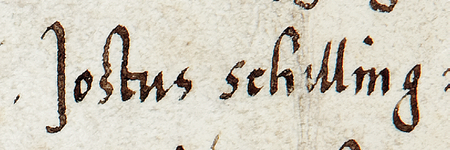 Jostus schilling